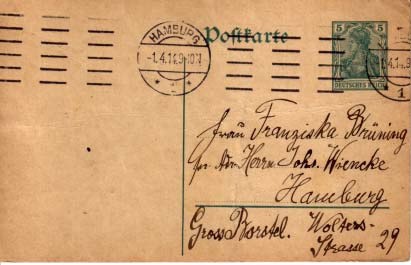 HAMBURG
-1.4.14.9-10V
Postkarte
5 5
DEUTSCHES REICH
1
Frau Franziska Brüning
Herrn Johs. Wiencke
Hamburg
Gross Borstel. Wolters-
Strasse 29